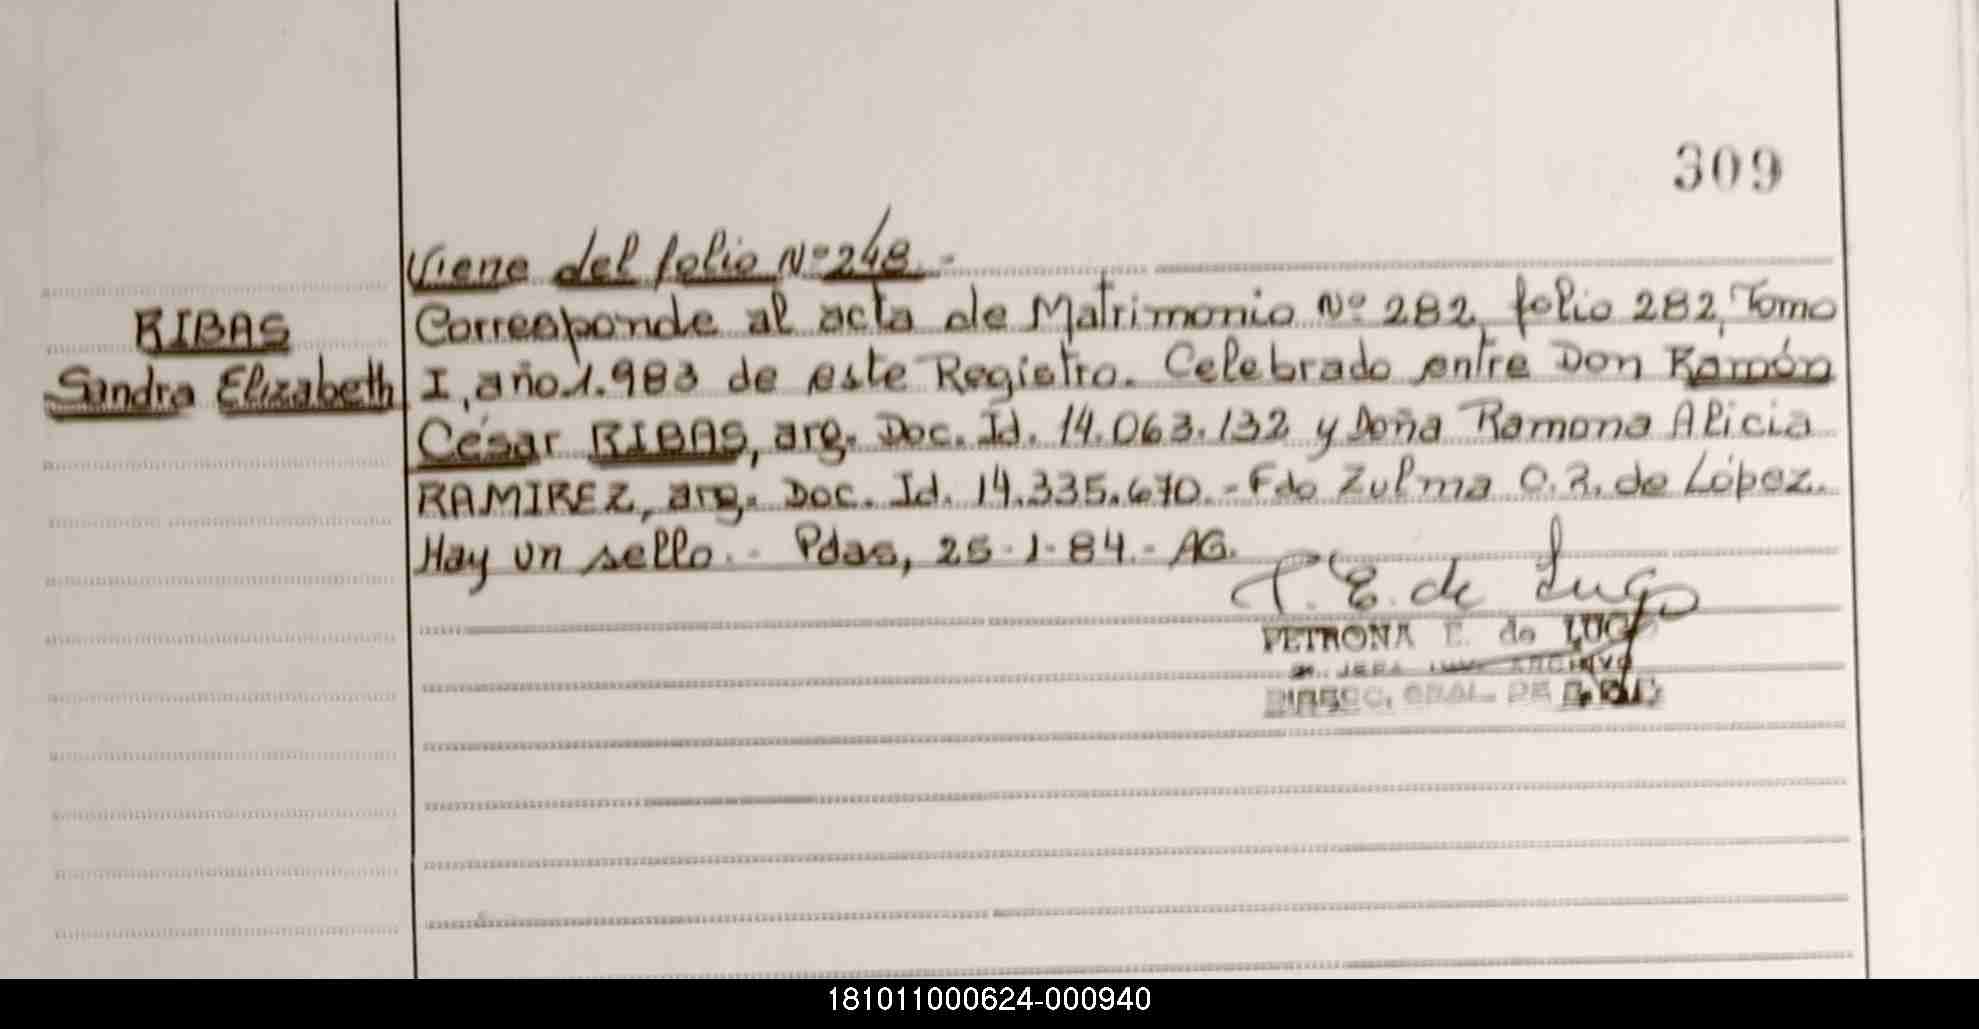 309
Viene del folio Nº 248.-
RIBAS
Sandra Elizabeth
Corresponde al acta de Matrimonio Nº 282, folio 282, Tomo
I, año 1.983 de este Registro. Celebrado entre Don Ramón
César RIBAS, arg. Doc. Id. 14.063.132 y Doña Ramona Alicia
RAMIREZ, arg. Doc. Id. 14.335.670.- Fdo Zulma O.R. de López.
Hay un sello.- Pdas, 25-1-84.- AG.
P. E. de Lugo
PETRONA E. de LUGO
JEFA ARCHIVO
DIRECC. GRAL. DE
181011000624-000940